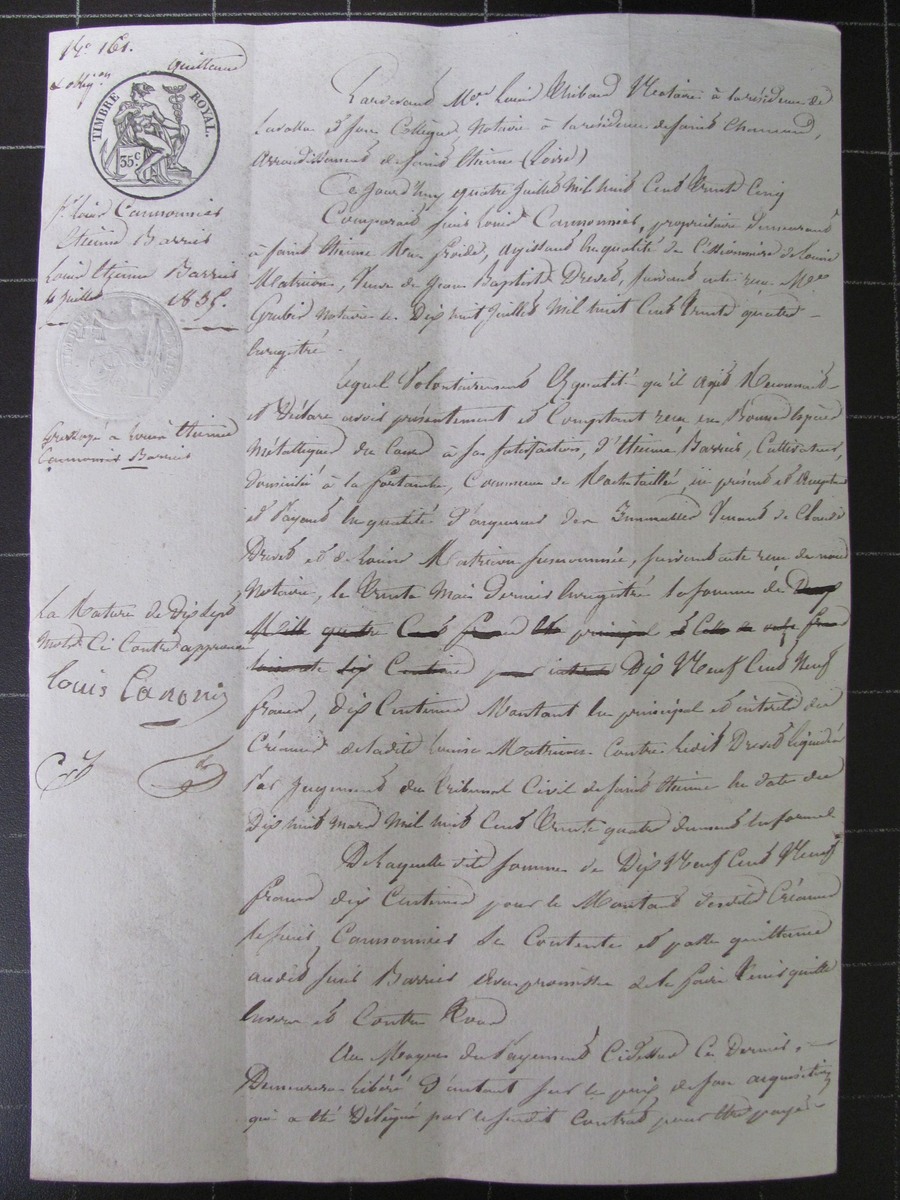 N.o 161.
quittance
TIMBRE ROYAL.
35c
Sr. Louis Cannonier
Etienne Barrier
Louis Etienne Barrier
4 Juillet 1835.
à Louis Etienne
Cannonier Barrier
La Rature de dix sept
mots ci contre approuvée
Louis Canonie
Pardevant Me. Louis Thibaud Notaire à la résidence de
Lavalla et son Collègue Notaire à la résidence de Saint Chamond,
Arrondissement de Saint Etienne (Loire)
Ce Jourd'huy quatre Juillet Mil huit Cent Trente Cinq
Comparait Sieur Louis Cannonier, propriétaire demeurant
à Saint Etienne Rue froide, agissant en qualité de Cessionnaire de Louise
Matricon, Veuve de Jean Baptiste Drevet, suivant acte reçu Me.
Notaire le Dix huit Juillet Mil huit Cent Trente quatre
Enregistré.
Lequel Volontairement En qualité qu'il agit Reconnait
et Déclare avoir présentement et Comptant reçu en Bonnes Espèces
Métalliques du Cours à sa satisfaction, d'Etienne Barrier, Cultivateur,
Domicilié à la, Commune de Rochetaillée, ici présent et acceptant
et Payant En qualité d'acquéreur des Immeubles Venant de Claude
Drevet et de Louise Matricon susnommée, suivant acte reçu de nous
Notaire, le Trente Mai Dernier Enregistré la somme de Deux
Mille quatre Cent francs de principal et Celle de onze francs
soixante dix Centimes pour intérêts Dix Neuf Cent Neuf
francs, dix Centimes Montant En principal et intérêts des
Créances de ladite Louise Matricon Contre ledit Drevet liquidées
Par Jugement du Tribunal Civil de Saint Etienne En date du
Dix huit mars Mil huit Cent Trente quatre dument En forme
De laquelle dite somme de Dix Neuf Cent Neuf
francs dix Centimes pour le Montant desdites Créances
le Sieur Cannonier Se Contente et passe quittance
audit Sieur Barrier avec promesse de le faire Tenir quitte
Envers et Contre Tous
Au Moyen du Payement Ci Dessus Ce Dernier
Demeurera libéré D'autant sur le prix de son acquisition
qui a été Délégué par le susdit Contrat pour être payé